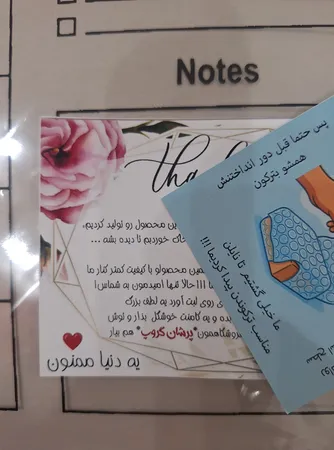 Notes
tha
ین محصول رو تولید کردیم،
خاک خوردیم تا دیده بشه ...
همین محصولو با کیفیت کمتر کنار ما
!!!حالا تنها امیدمون به شماس!
روی لبت آورد یه لطف بزرگ
ده و یه کامنت خوشگل بذار و توش
روشگاهمون"پرشان گروپ" هم بیار
یه دنیا ممنون
پس حتما قبل دور انداختنش
همشو بترکون
ما خیلی گشتیم تا نایلن
مناسب ترکوندن پیدا کردیما !!!
سطح